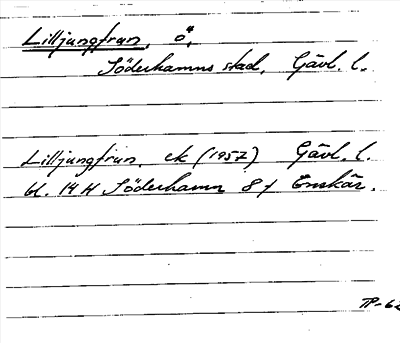 Lilljungfrun, ö.
Söderhamns stad, Gävl. l.
Lilljungfrun, ek (1957) Gävl. l.
bl. 14 H Söderhamn 8 f Enskär.
TP-62